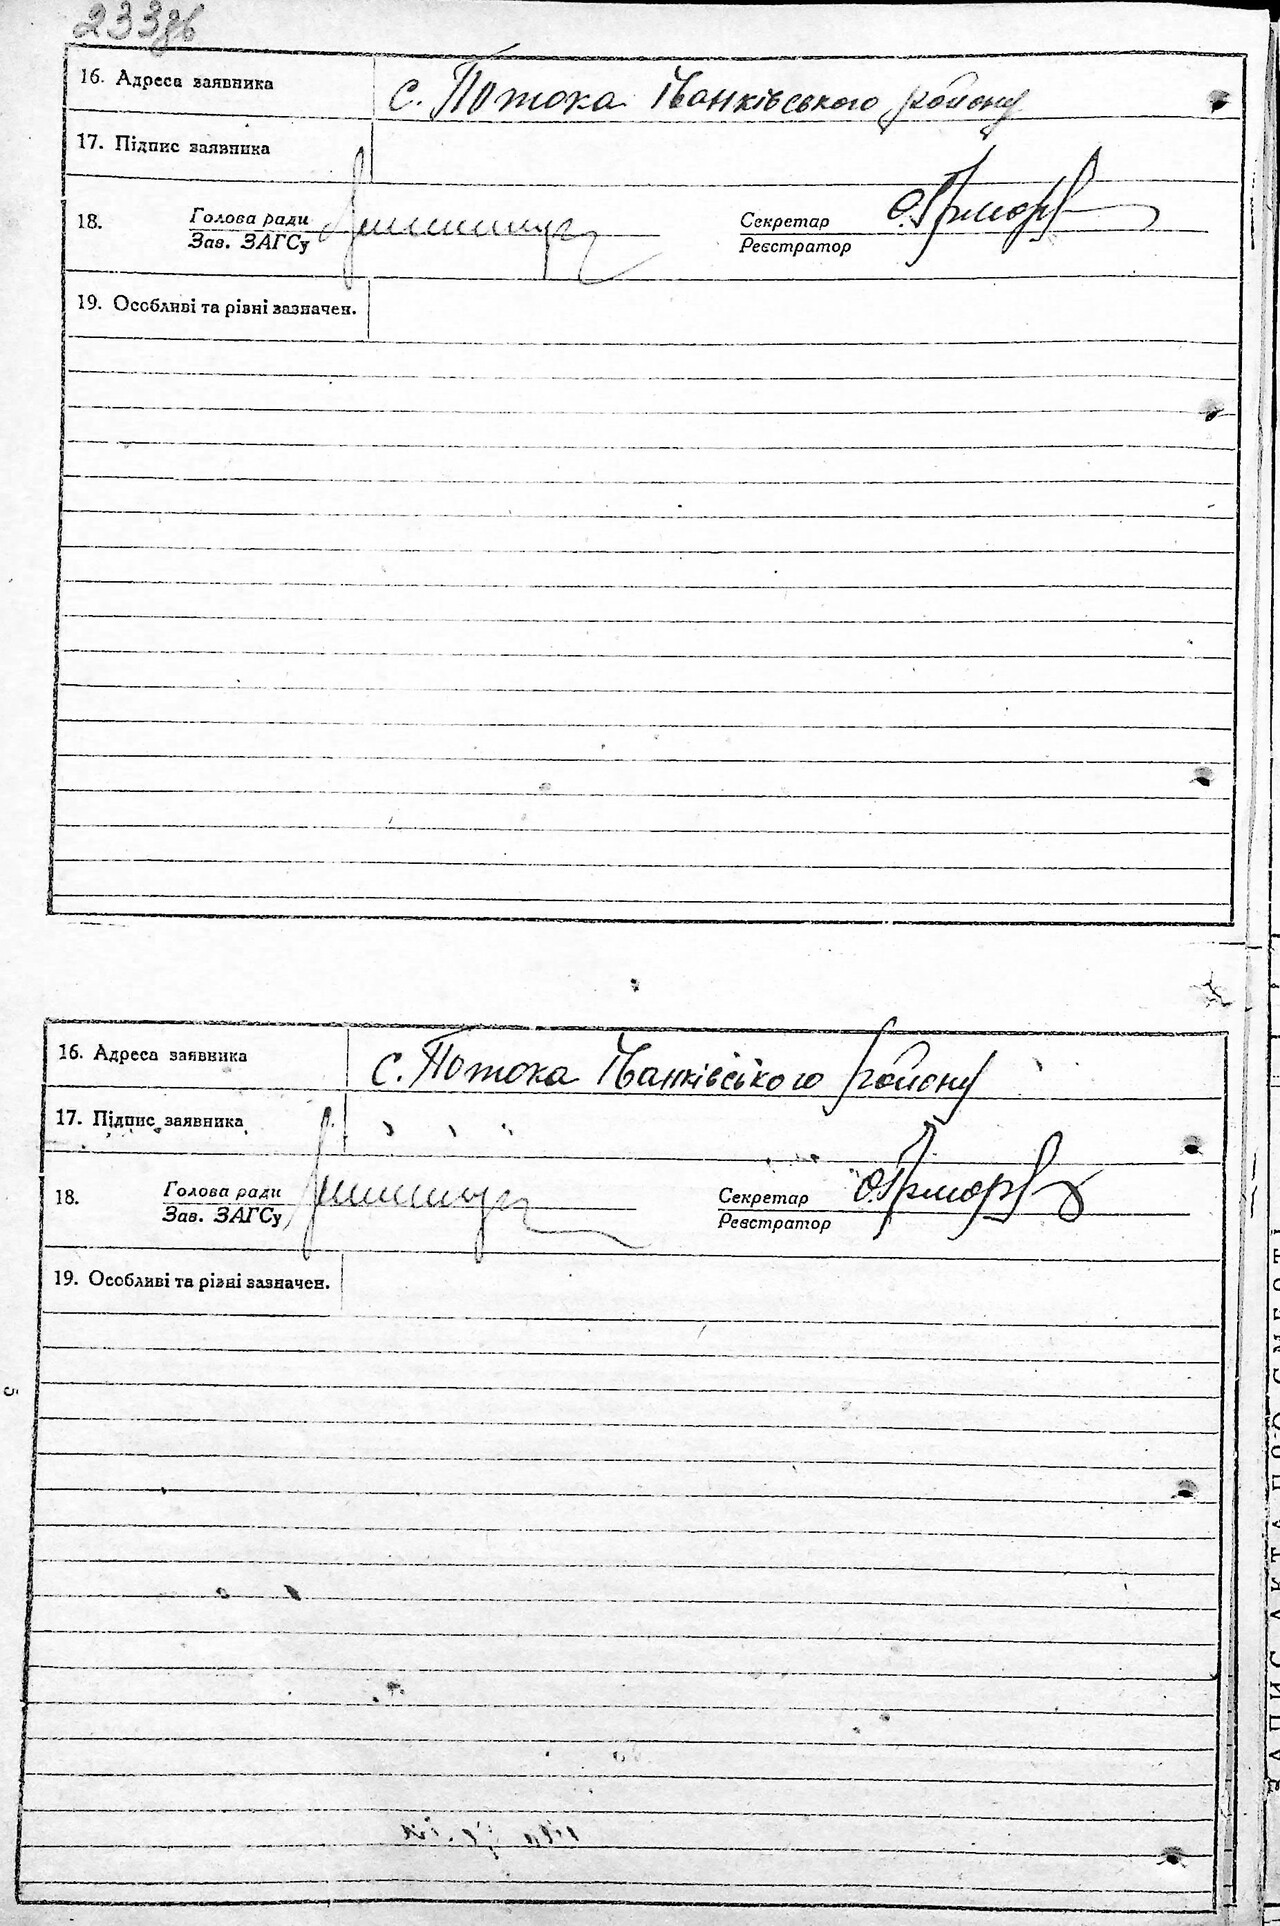 233зв
16. Адреса заявника с. Потока Іванківського району
17. Підпис заявника
18. Голова ради Секретар
Зав. ЗАГСу Реєстратор
19. Особливі та рівні зазначен.
16. Адреса заявника с. Потока Іванківського району
17. Підпис заявника
18. Голова ради Секретар
Зав. ЗАГСу Реєстратор
19. Особливі та рівні зазначен.
5
ЗАПИС АКТА ПРО СМЕРТЬ